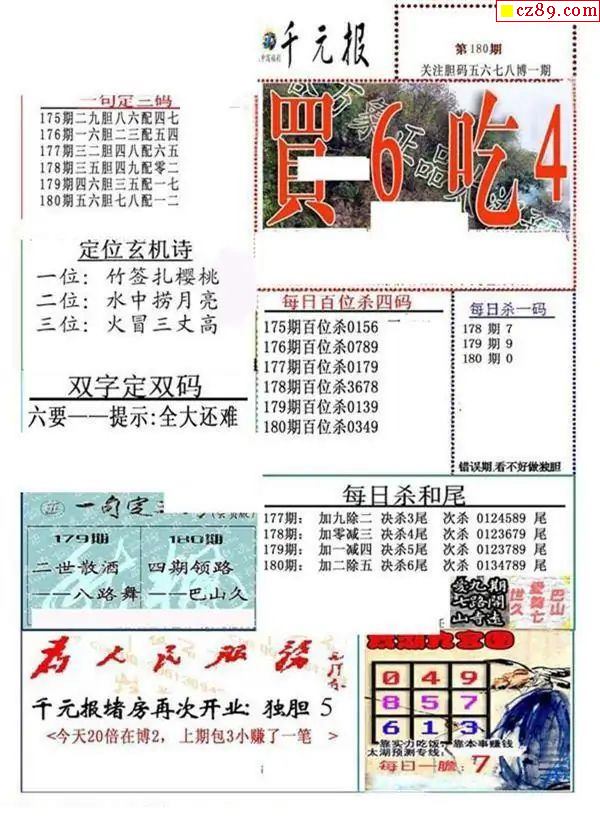 cz89.com
千元报
第180期
关注胆码五六七八博一期
一句定三码
175期二九胆八六配四七
176期一六胆二三配五四
177期三二胆四八配六五
178期三五胆四九配零二
179期四六胆三五配一七
180期五六胆七八配一二
買一6吃4
定位玄机诗
一位: 竹签扎樱桃
二位: 水中捞月亮
三位: 火冒三丈高
每日百位杀四码
175期百位杀0156
176期百位杀0789
177期百位杀0179
178期百位杀3678
179期百位杀0139
180期百位杀0349
每日杀一码
178 期 7
179 期 9
180 期 0
错误期,看不好做独胆
双字定双码
六要——提示:全大还难
每日杀和尾
177期: 加九除二 决杀3尾 次杀 0124589 尾
178期: 加零减三 决杀4尾 次杀 0123679 尾
179期: 加一减四 决杀5尾 次杀 0123789 尾
180期: 加二除五 决杀6尾 次杀 0134789 尾
一句定三
179期
二世散酒
——八路舞
180期
四期领路
——巴山久
为人民服务
千元报堵房再次开业: 独胆 5
<今天20倍在博2, 上期包3小赚了一笔 >
0 4 9
8 5 7
6 1 3
靠实力吃饭,靠本事赚钱
太湖预测专线:
每日一胆: 7